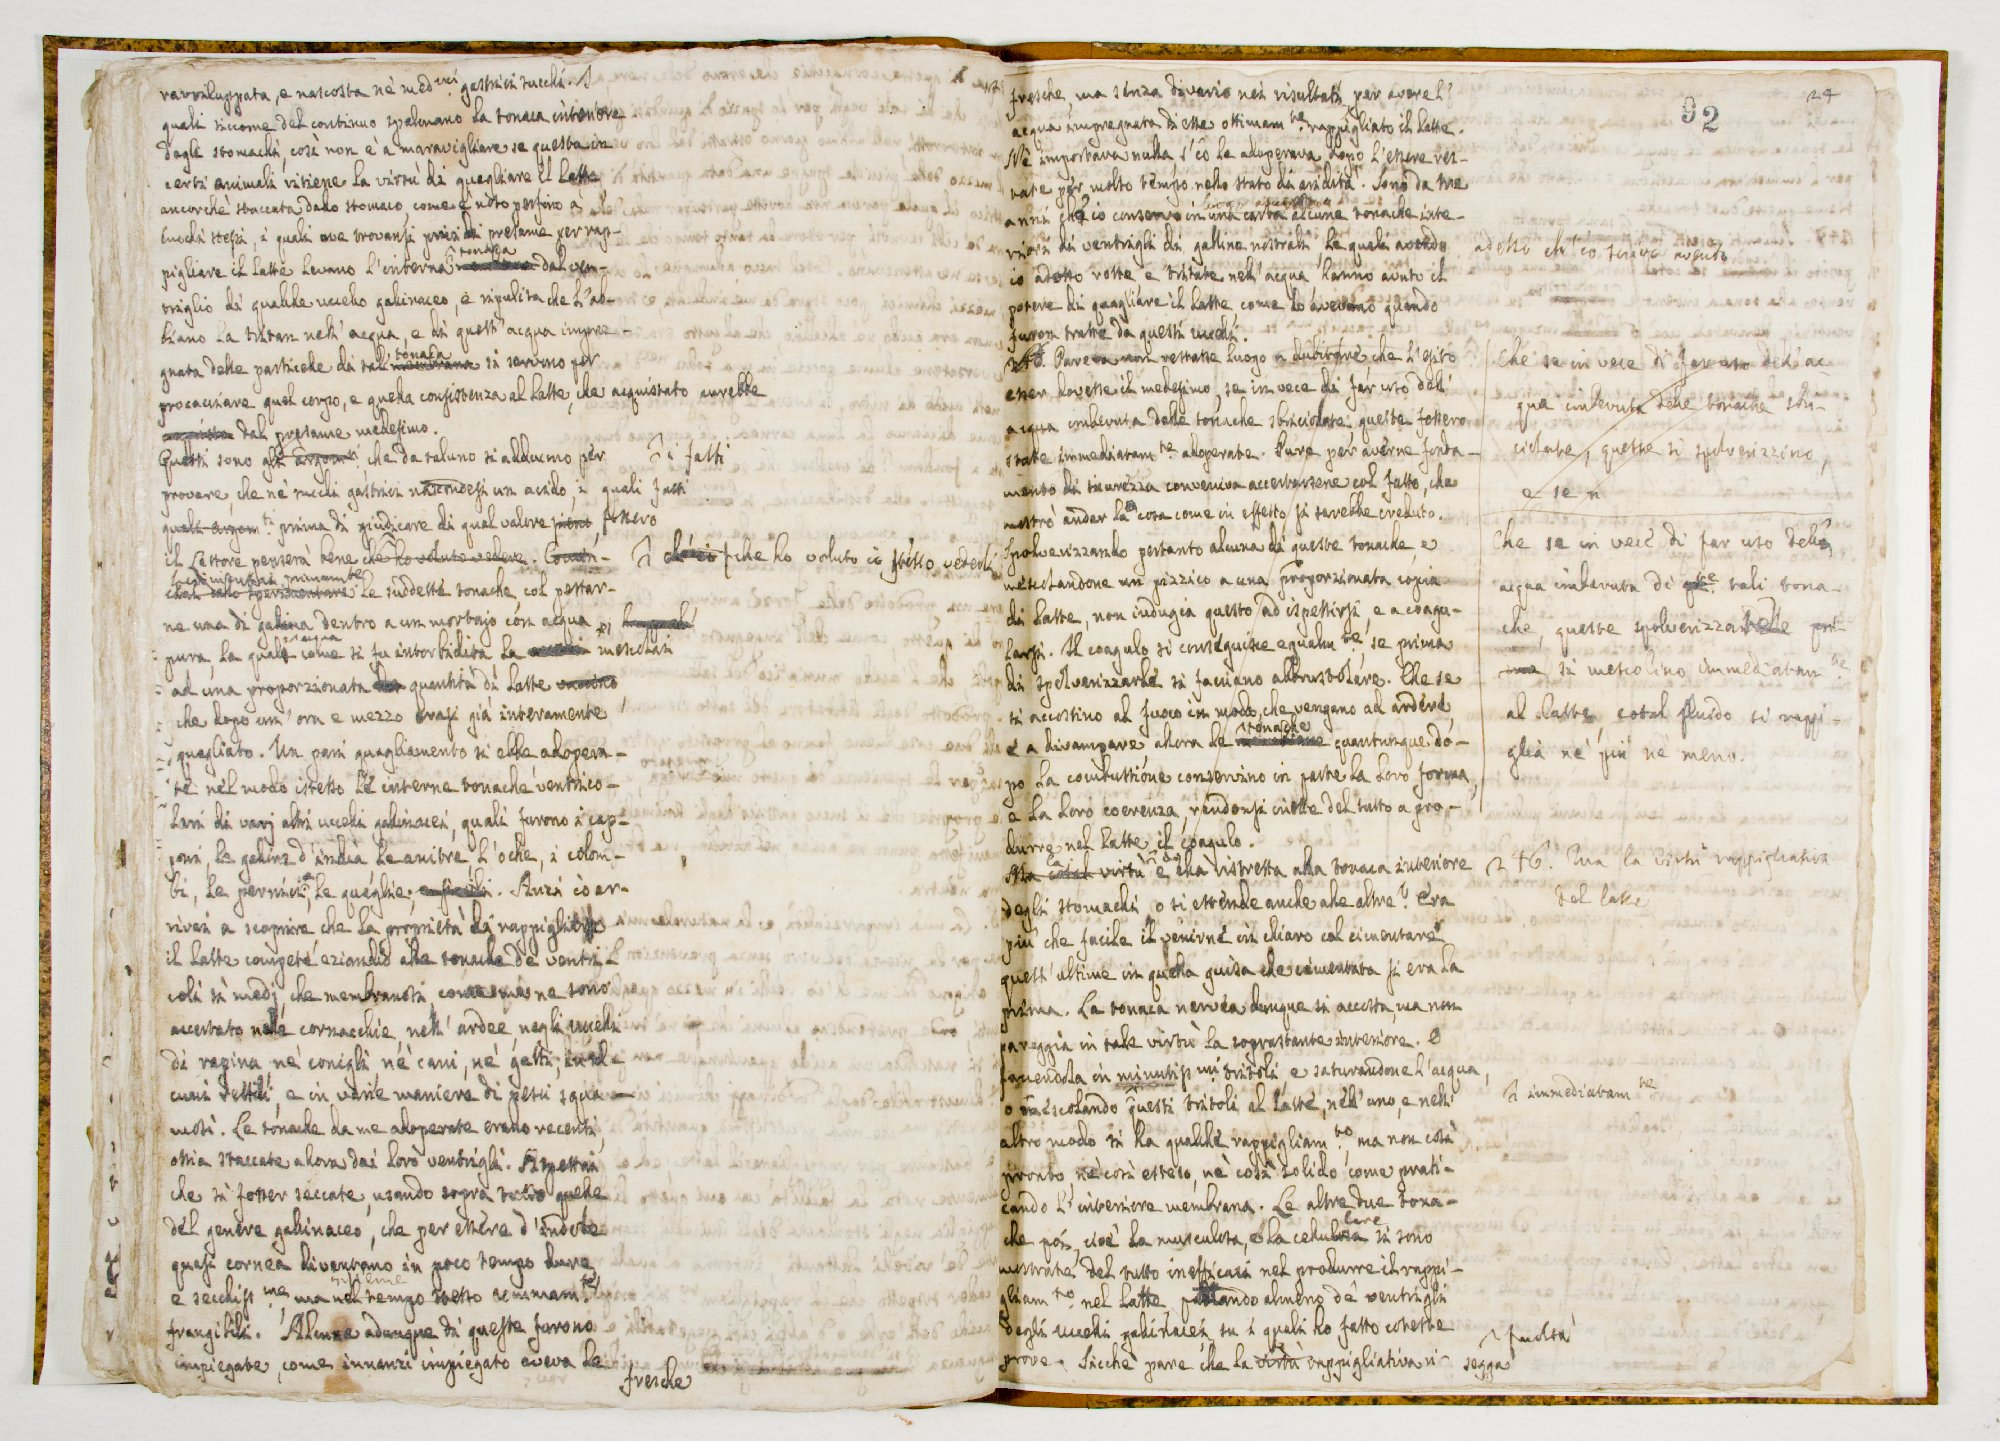 ravviluppata, e nascosta nè med.mi gastrici succhi. I
quali siccome del continuo spalmano la tonaca interiore
degli stomachi, così non è a maravigliare se questa in
certi animali ritiene la virtù di quagliare il latte
ancorchè staccata dallo stomaco, come è noto perfino a
cuochi stessi, i quali ove trovansi privi di presame per rap-
pigliare il latte levano l'interna tonaca dal ven-
triglio di qualche uccello gallinaceo, e ripulita che l'ab-
biano la tritan nell'acqua, e di quest'acqua impre-
gnata delle particelle di tal tonaca membrana si servono per
procacciare quel corpo, e quella consistenza al latte, che acquistato avrebbe
dal presame medesimo.
Questi sono gli argom.ti che da taluno si adducono per i fatti
provare, che nè succhi gastrici nascondesi un acido, i quali fatti
quali argom.ti prima di giudicare di qual valore sieno fossero
il Lettore penserà bene che ho voluto vedere. che ho voluto io stesso vederli
le suddette tonache, col pestar-
ne una di gallina dentro a un mortajo con acqua
pura, la quale acqua come si fu intorbidita la mescolai
ad una proporzionata quantità di latte vaccino
che dopo un'ora e mezzo erasi già interamente
quagliato. Un pari quagliamento si ebbe adopera-
te nel modo istesso le interne tonache ventrico-
lari di varj altri uccelli gallinacei, quali furono i cap-
poni, le galline d'india le anitre, l'oche, i colom-
bi, le pernici, le quaglie, e simili. Anzi io ar-
rivai a scoprire che la proprietà di rappigliare
il latte compete eziandio alle tonache de' ventri-
coli sì medj che membranosi, come me ne sono
accertato nelle cornacchie, nell'ardee negli uccelli
di rapina, nè conigli nè cani, nè gatti, in al-
cuni rettili, e in varie maniere di pesci squa-
mosi. Le tonache da me adoperate erano recenti,
ossia staccate allora dai loro ventrigli. Aspettai
che si fosser seccate, usando sopra tutto quelle
del genere gallinaceo, che per essere d'indole
quasi cornea diventano in poco tempo dure,
e secchiss.me, ma nel tempo stesso insieme sommam.te
frangibili. Alcune adunque di queste furono
impiegate, come innanzi impiegato aveva le
fresche
92
24
fresche, ma senza divario nei risultati, per avere l'
acqua impregnata di esse ottimam.te rappigliato il latte.
Nè importava nulla s'io le adoperava dopo l'essere res-
tate per molto tempo nello stato di aridità. Sono da tre
anni che io conservo in una carta alcune tonache inte-
riori di ventrigli di galline nostrali le quali avendo adesso ch'io scrivo avendo
io adesso rotte e tritate nell'acqua hanno avuto il
potere di quagliare il latte, come lo avevano quando
furon tratte da questi uccelli.
Pareva non restasse luogo a dubitare che l'esito
esser dovesse il medesimo, se in vece di far uso dell'
acqua imbevuta delle tonache sbriciolate, queste fossero
state immediatam.te adoperate. Pure per averne fonda-
mento di sicurezza conveniva accertarsene col fatto, che
mostrò andar la cosa come in effetto si sarebbe creduto.
Spolverizzando pertanto alcuna di queste tonache e
mescolandone un pizzico a una proporzionata copia
di latte, non indugia questo ad ispessirsi, e a coagu-
larsi. Il coagulo si conseguisce egualm.te se prima
di spolverizzarle si facciano abbrustolire. Che se
si accostino al fuoco in modo, che vengano ad ardere,
e a divampare allora le tonache quantunque do-
po la combustione conservino in parte la loro forma,
e la loro coerenza, rendonsi inette del tutto a pro-
durre nel latte il coagulo.
Che se in vece di far uso dell'ac
qua imbevuta delle tonache sbri-
ciolate, queste si spolverizzino,
e se n
Che se in vece di far uso dell'
acqua imbevuta di tali tona-
che, queste spolverizzatele pri-
ma si mescolino immediatam.te
al latte, cotal fluido si rappi-
glia nè più nè meno.
Ma cotal virtù è ella ristretta alla tonaca interiore 246. Ma la virtù rappigliativa
del latte
degli stomachi o si estende anche alle altre? Era
più che facile il venirne in chiaro col cimentare
quest'ultime in quella guisa che cimentata si era la
prima. La tonaca nervea dunque si accosta, ma non
pareggia in tale virtù la soprastante interiore. E
facendola in minutiss.mi tritoli e saturandone l'acqua,
o mescolando questi tritoli al latte, nell'uno, e nell' immediatam.te
altro modo si ha qualche rappigliam.to ma non così
pronto, nè così esteso, nè così solido, come prati-
cando l'interiore membrana. Le altre due tona-
che poi, cioè la musculosa, e la cellulare si sono
mostrate del tutto inefficaci nel produrre il rappi-
gliam.to nel latte, parlando almeno de' ventrigli
degli uccelli gallinacei su i quali ho fatto coteste
prove. Sicchè pare che la virtù rappigliativa ri- facoltà
segga